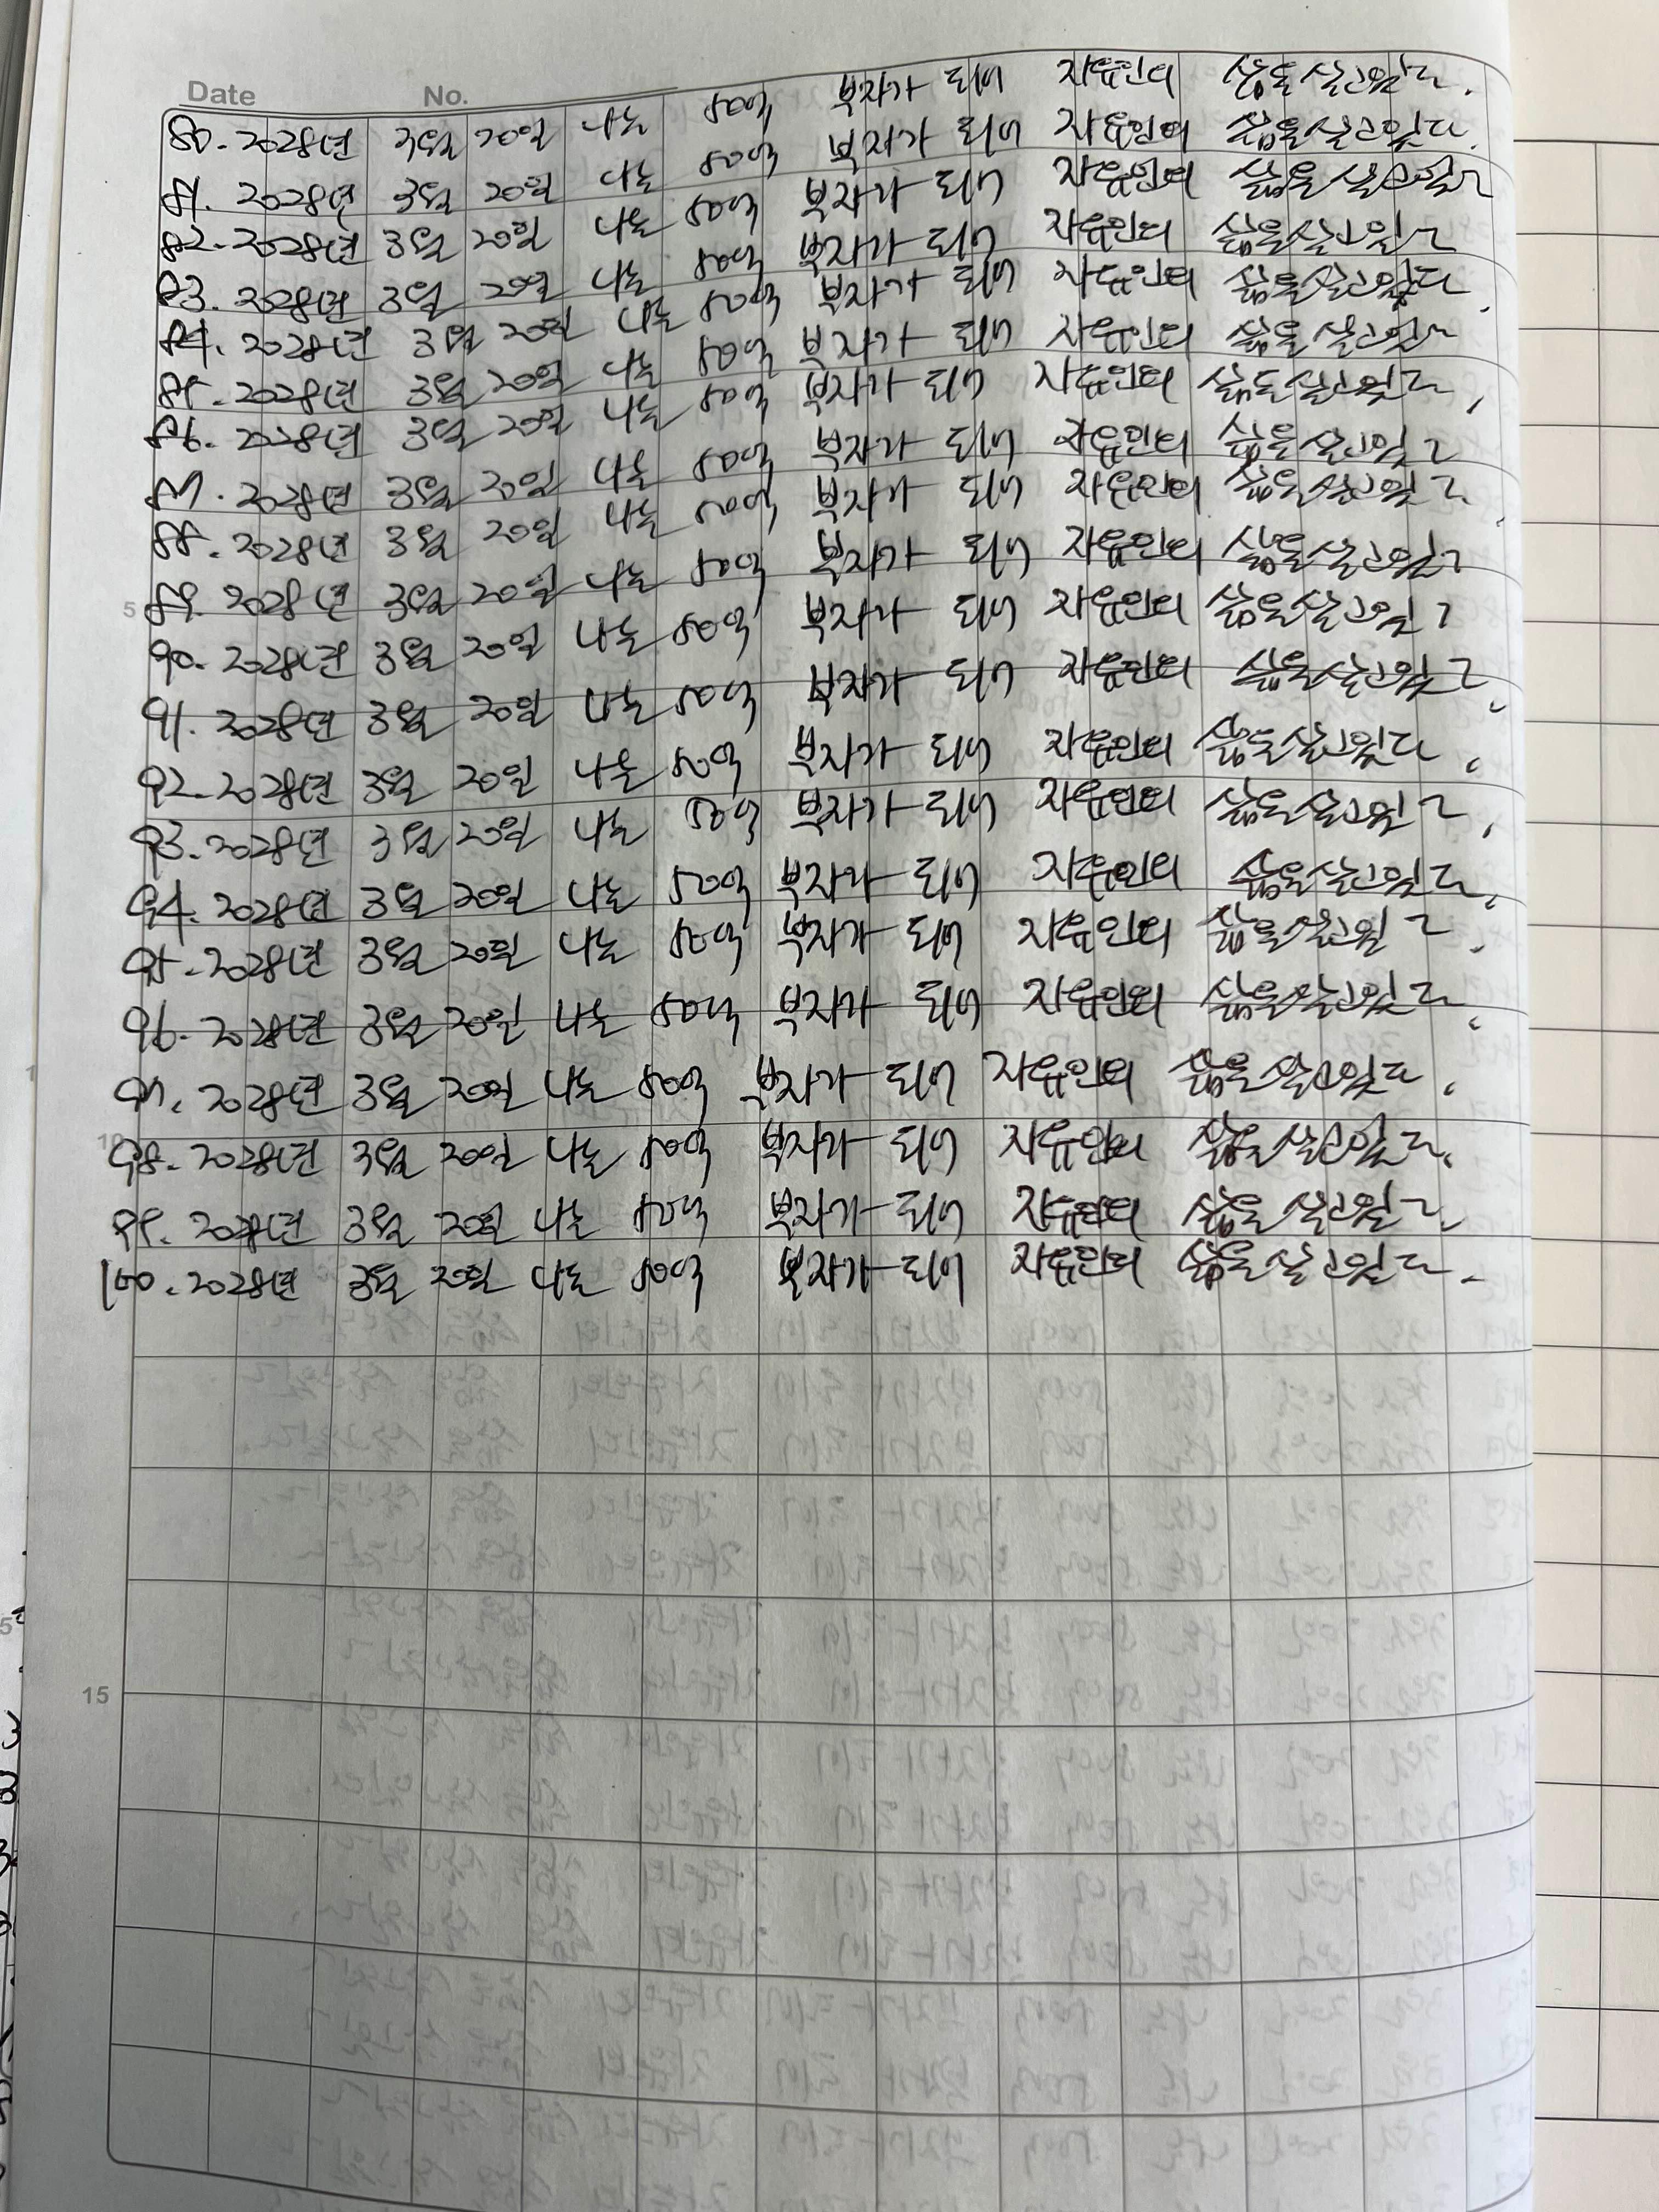 Date No.
80. 2028년 3월 20일 나는 50억 부자가 되어 자유인의 삶을 살고있다.
81. 2028년 3월 20일 나는 50억 부자가 되어 자유인의 삶을 살고있다.
82. 2028년 3월 20일 나는 50억 부자가 되어 자유인의 삶을 살고있다
83. 2028년 3월 20일 나는 50억 부자가 되어 자유인의 삶을 살고있다
84. 2028년 3월 20일 나는 50억 부자가 되어 자유인의 삶을 살고있다.
85. 2028년 3월 20일 나는 50억 부자가 되어 자유인의 삶을 살고있다
86. 2028년 3월 20일 나는 50억 부자가 되어 자유인의 삶을 살고있다.
87. 2028년 3월 20일 나는 50억 부자가 되어 자유인의 삶을 살고있다
88. 2028년 3월 20일 나는 50억 부자가 되어 자유인의 삶을 살고있다.
89. 2028년 3월 20일 나는 50억 부자가 되어 자유인의 삶을 살고있다
5
90. 2028년 3월 20일 나는 50억 부자가 되어 자유인의 삶을 살고있다
91. 2028년 3월 20일 나는 50억 부자가 되어 자유인의 삶을 살고있다.
92. 2028년 3월 20일 나는 50억 부자가 되어 자유인의 삶을 살고있다.
93. 2028년 3월 20일 나는 50억 부자가 되어 자유인의 삶을 살고있다.
94. 2028년 3월 20일 나는 50억 부자가 되어 자유인의 삶을 살고있다.
95. 2028년 3월 20일 나는 50억 부자가 되어 자유인의 삶을 살고있다.
96. 2028년 3월 20일 나는 50억 부자가 되어 자유인의 삶을 살고있다.
97. 2028년 3월 20일 나는 50억 부자가 되어 자유인의 삶을 살고있다.
10
98. 2028년 3월 20일 나는 50억 부자가 되어 자유인의 삶을 살고있다.
99. 2028년 3월 20일 나는 50억 부자가 되어 자유인의 삶을 살고있다.
100. 2028년 3월 20일 나는 50억 부자가 되어 자유인의 삶을 살고있다.
15